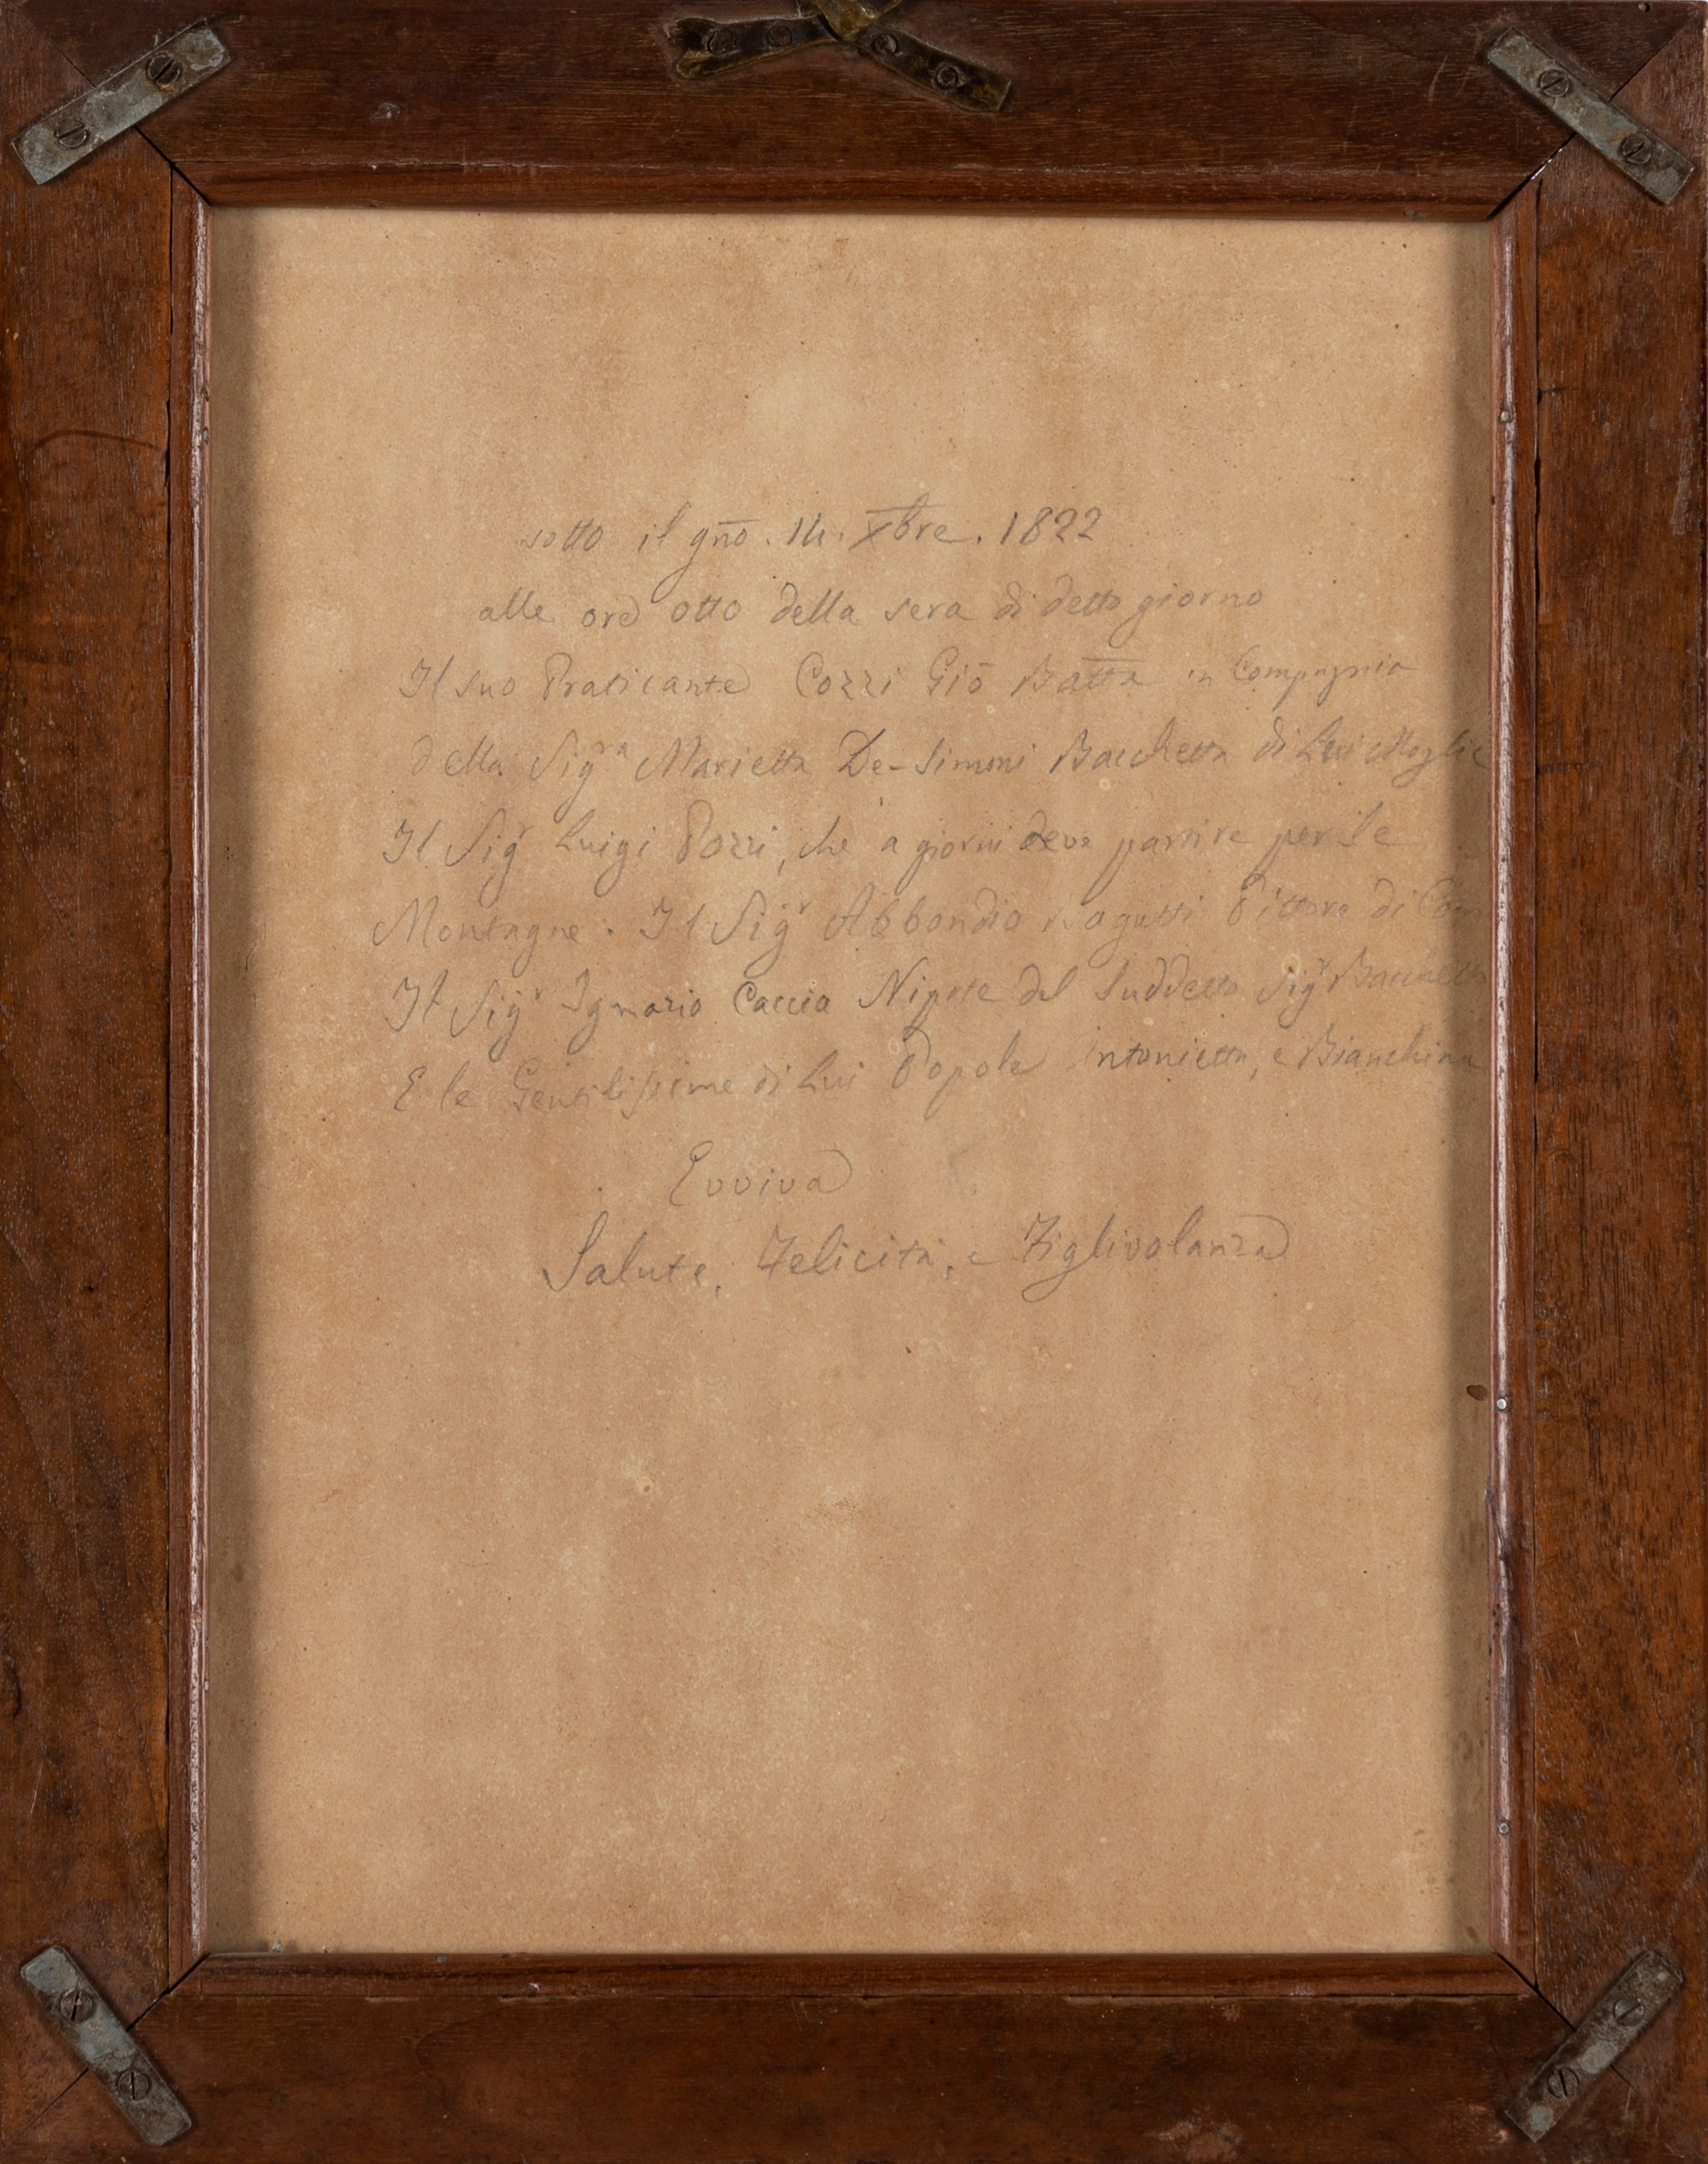 sotto il gno. 14. Xbre. 1822
alle ore otto della sera di detto giorno
Il suo Praticante Cozzi Gio Batta in Compagnia
della Sigra Marietta De-Simoni Bacchetta di Lui Moglie
Il Sigr Luigi Pozzi, che a giorni deve partire per le
Montagne. Il Sigr Abbondio Bagutti Pittore di
Il Sigr Ignazio Caccia Nipote del Suddetto Sigr Bacchetta
E le Gentilissime di Lui Popole Antonietta, e Bianchina
Evviva
Salute, Felicità, e Figlivolanza